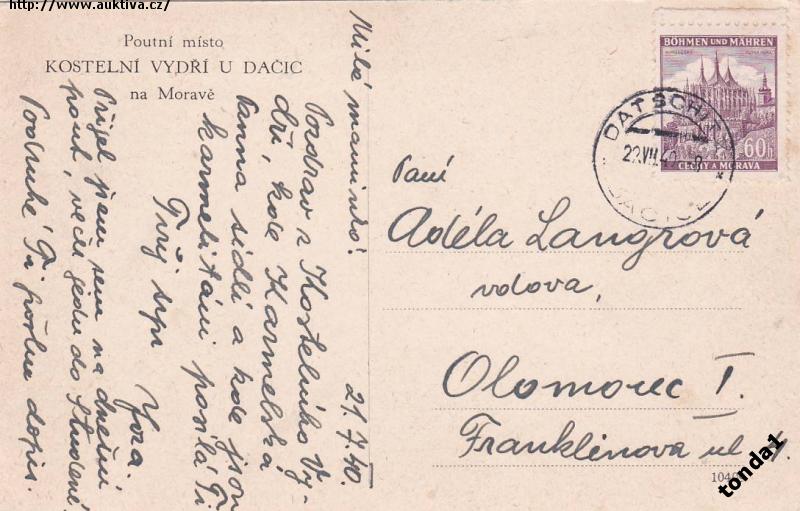 http://www.auktiva.cz/
Poutní místo
KOSTELNÍ VYDŘÍ U DAČIC
na Moravě
Milá maminko! 21.7.40.
Pozdrav z Kostelního Vy-
dří, kde Karmelská
Panna sídlí a kde jsou
karmelitáni posílá Ti
Tvůj syn
Jora.
Přijel jsem sem na dnešní
pouť, večer jedu do Studené.
Podruhé Ti pošlu dopis.
BÖHMEN UND MÄHREN
60h
ČECHY A MORAVA
DATSCHITZ
22.VII.40
DAČICE
Paní
Adéla Langrová
vdova,
Olomouc I.
Franklinova ul
1040
tonda1